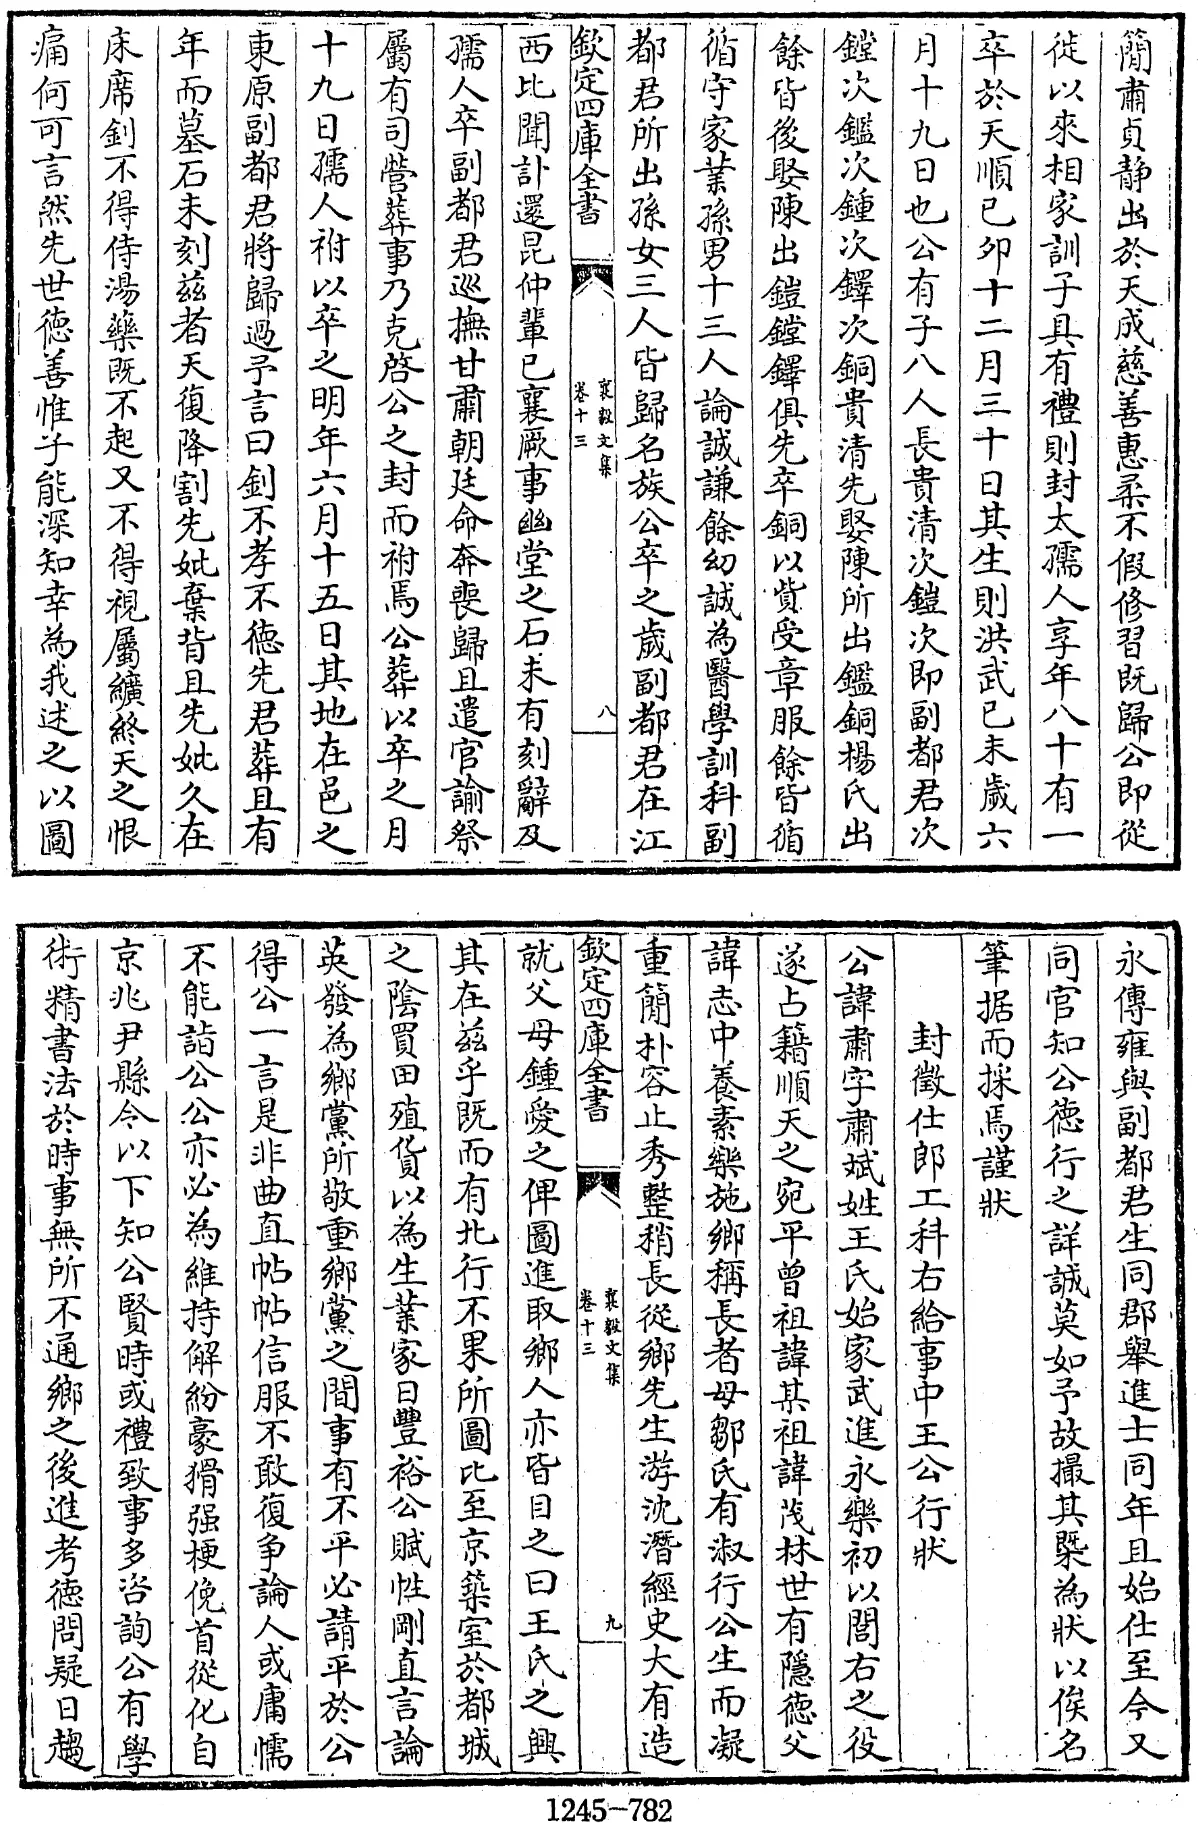 簡肅貞靜出於天成慈善惠柔不假修習既歸公即從
徙以來相家訓子具有禮則封太孺人享年八十有一
卒於天順己卯十二月三十日其生則洪武己未歲六
月十九日也公有子八人長貴清次鎧次即副都君次
鏜次鑑次鍾次鐸次銅貴清先娶陳所出鑑銅楊氏出
餘皆後娶陳出鎧鏜鐸俱先卒銅以貲受章服餘皆循
循守家業孫男十三人論誠謙餘幼誠為醫學訓科副
都君所出孫女三人皆歸名族公卒之歲副都君在江
欽定四庫全書
襄毅文集
卷十三
八
西比聞訃還昆仲輩已襄厥事幽堂之石未有刻辭及
孺人卒副都君巡撫甘肅朝廷命奔喪歸且遣官諭祭
屬有司營葬事乃克啓公之封而祔焉公葬以卒之月
十九日孺人祔以卒之明年六月十五日其地在邑之
東原副都君將歸過予言曰釗不孝不德先君葬且有
年而墓石未刻兹者天復降割先妣棄背且先妣久在
床席釗不得侍湯藥既不起又不得視屬纊終天之恨
痛何可言然先世德善惟子能深知幸為我述之以圖
永傳雍與副都君生同郡舉進士同年且始仕至今又
同官知公德行之詳誠莫如予故撮其槩為狀以俟名
筆据而採焉謹狀
封徵仕郎工科右給事中王公行狀
公諱肅字肅斌姓王氏始家武進永樂初以閭右之役
遂占籍順天之宛平曾祖諱某祖諱茂林世有隱德父
諱志中養素樂施鄉稱長者母鄒氏有淑行公生而凝
重簡朴容止秀整稍長從鄉先生游沈潛經史大有造
欽定四庫全書
襄毅文集
卷十三
九
就父母鍾愛之俾圖進取鄉人亦皆目之曰王氏之興
其在兹乎既而有北行不果所圖比至京築室於都城
之陰買田殖貨以為生業家日豐裕公賦性剛直言論
英發為鄉黨所敬重鄉黨之間事有不平必請平於公
得公一言是非曲直帖帖信服不敢復争論人或庸懦
不能詣公公亦必為維持解紛豪猾强梗俛首從化自
京兆尹縣令以下知公賢時或禮致事多咨詢公有學
術精書法於時事無所不通鄉之後進考德問疑日趨
1245-782